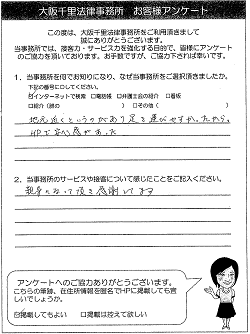 大阪千里法律事務所　お客様アンケート
この度は、大阪千里法律事務所をご利用頂きまして
誠にありがとうございます。
当事務所では、接客力・サービス力を強化する目的で、皆様にアンケート
のご協力を頂いております。お手数ですが、ご協力下されば幸いです。
1．当事務所を何でお知りになり、なぜ当事務所をご選択頂きましたか。
下記の番号に○してください。
☑インターネットで検索　□電話帳　□弁護士会の紹介　□看板
□紹介（　　　　　）　□その他（　　　　　）
地元近くというのがあり足を運びやすかったから。
HPで安心感があった
2．当事務所のサービスや接客について感じたことをご記入ください。
親身になって頂き感謝してます
アンケートへのご協力ありがとうございます。
こちらの筆跡、在住所情報を匿名でHPに掲載しても宜
しいでしょうか。
☑掲載してもよい　□掲載は控えて欲しい